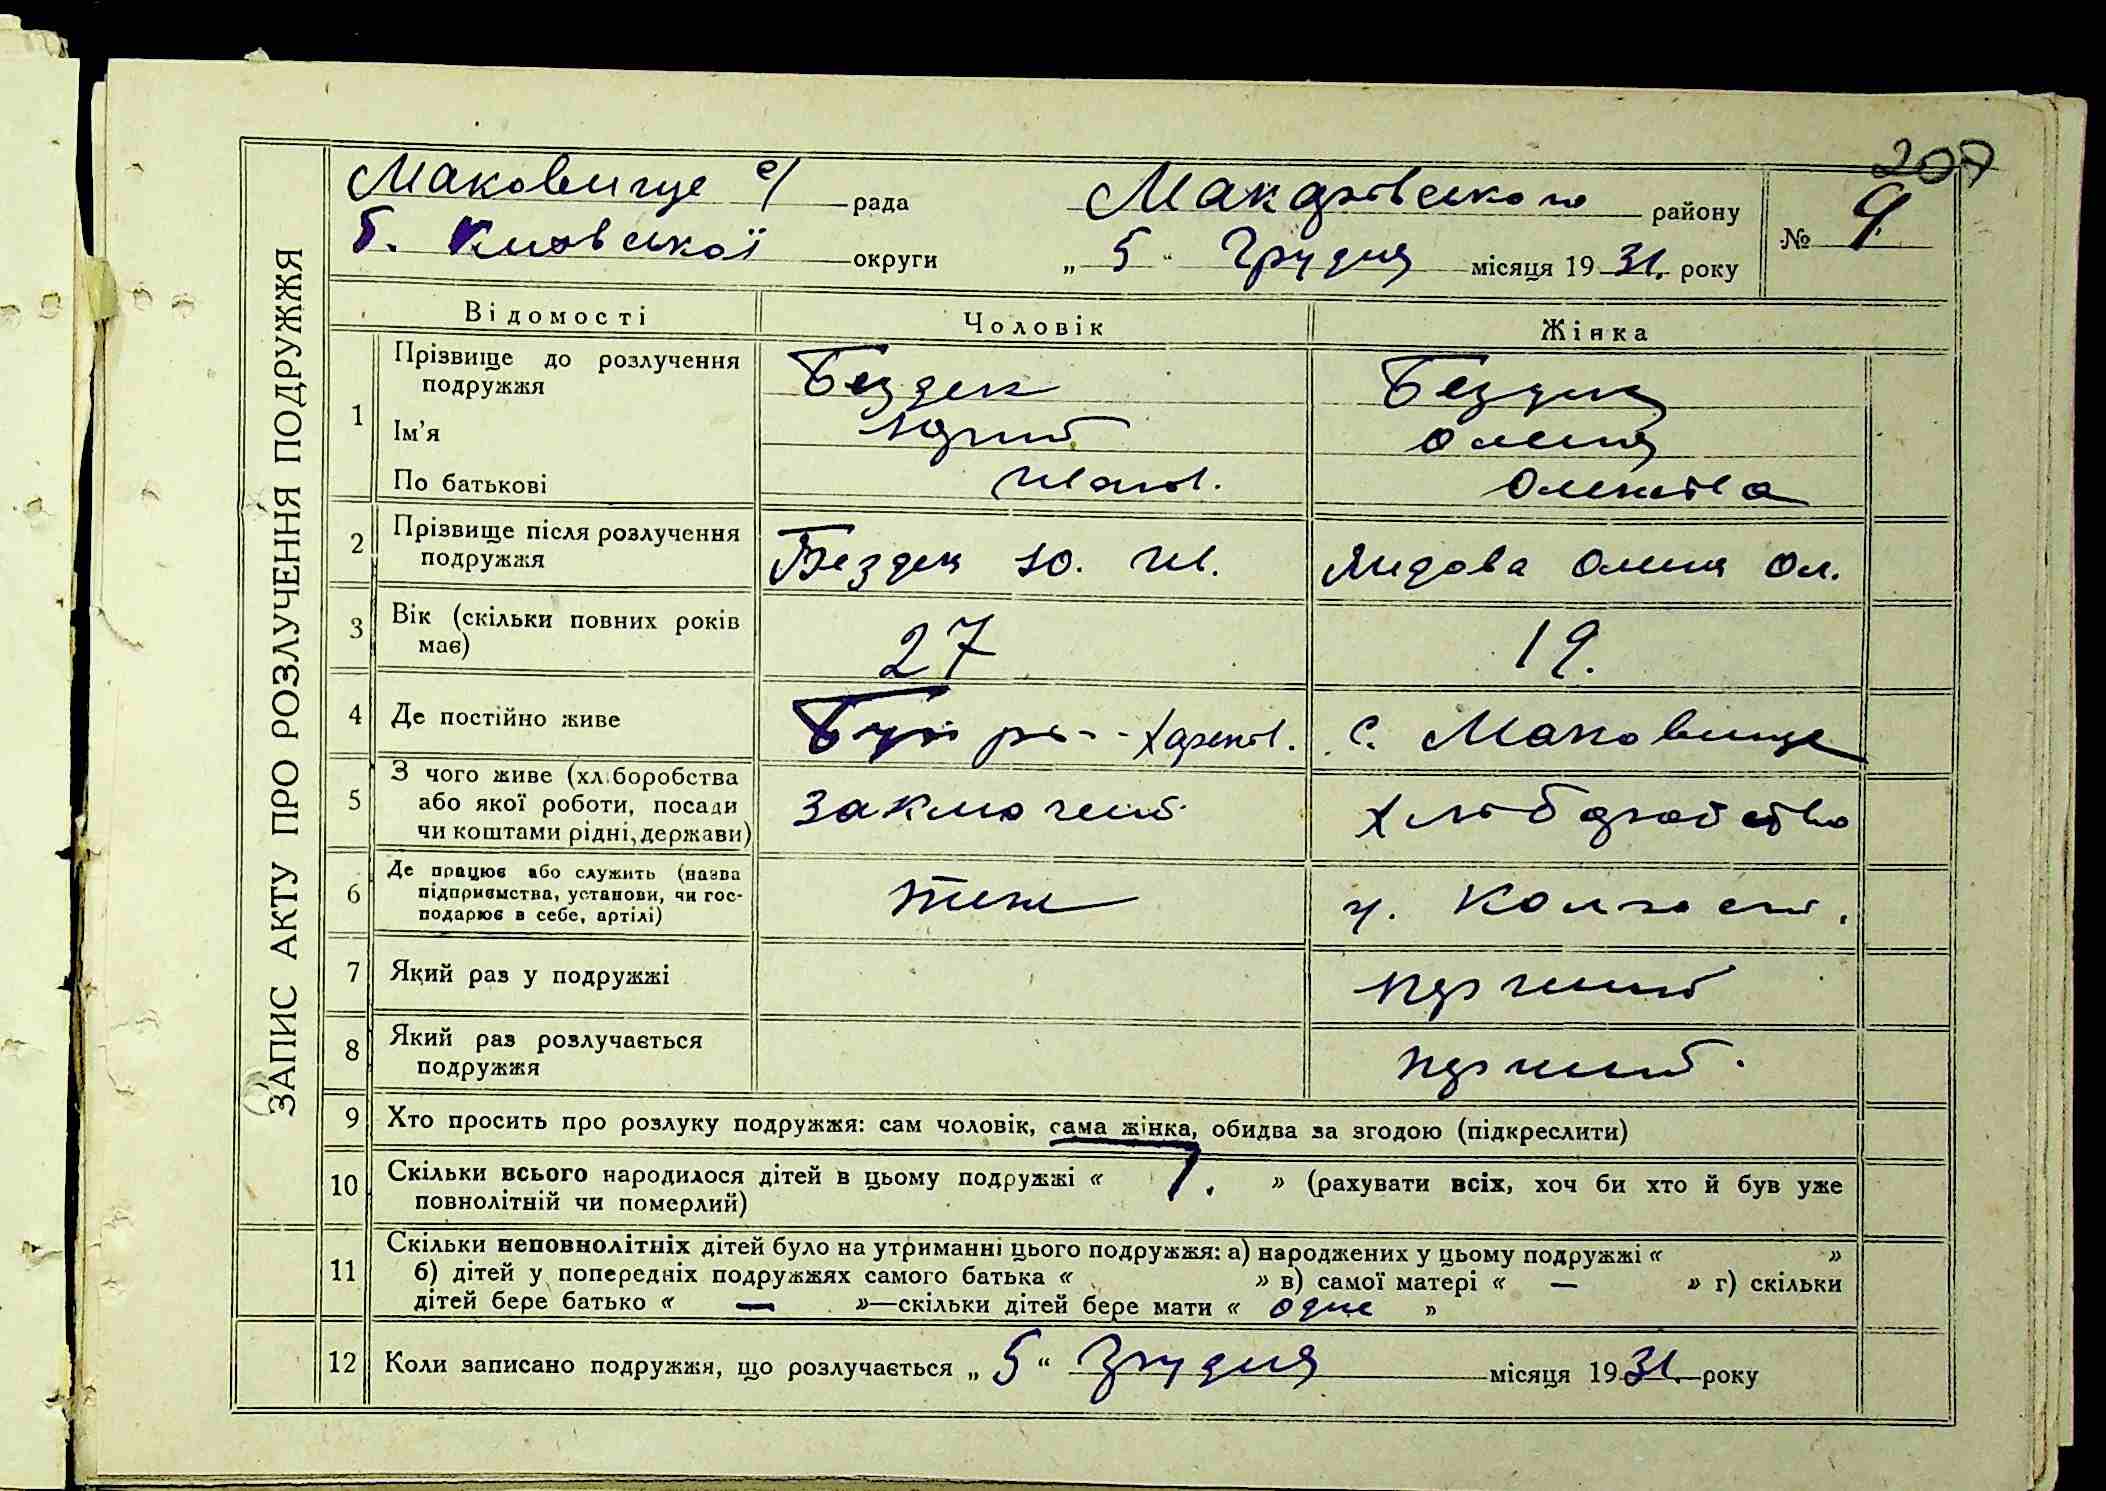 207
ЗАПИС АКТУ ПРО РОЗЛУЧЕННЯ ПОДРУЖЖЯ
Маковище с/ рада Макарівського району № 9.
б. Київської округи „ 5 “ Грудня місяця 19 31. року
Відомості Чоловік Жінка
1 Прізвище до розлучення подружжя Бездек Бездек
Ім'я Юрий Олена
По батькові Іванов.
2 Прізвище після розлучення подружжя Бездек Ю. Ів. Олена Ол.
3 Вік (скільки повних років має) 27 19.
4 Де постійно живе с. Маковище
5 З чого живе (хліборобства або якої роботи, посади чи коштами рідні, держави) заключений хліборобство
6 Де працює або служить (назва підприємства, установи, чи господарює в себе, артілі) теж у. Колгосп.
7 Який раз у подружжі перший
8 Який раз розлучається подружжя перший.
9 Хто просить про розлуку подружжя: сам чоловік, сама жінка, обидва за згодою (підкреслити)
10 Скільки всього народилося дітей в цьому подружжі « 1. » (рахувати всіх, хоч би хто й був уже
повнолітній чи померлий)
11 Скільки неповнолітніх дітей було на утриманні цього подружжя: а) народжених у цьому подружжі « »
б) дітей у попередніх подружжях самого батька « » в) самої матері « — » г) скільки
дітей бере батько « — »—скільки дітей бере мати « одне »
12 Коли записано подружжя, що розлучається „ 5 “ Грудня місяця 19 31. року